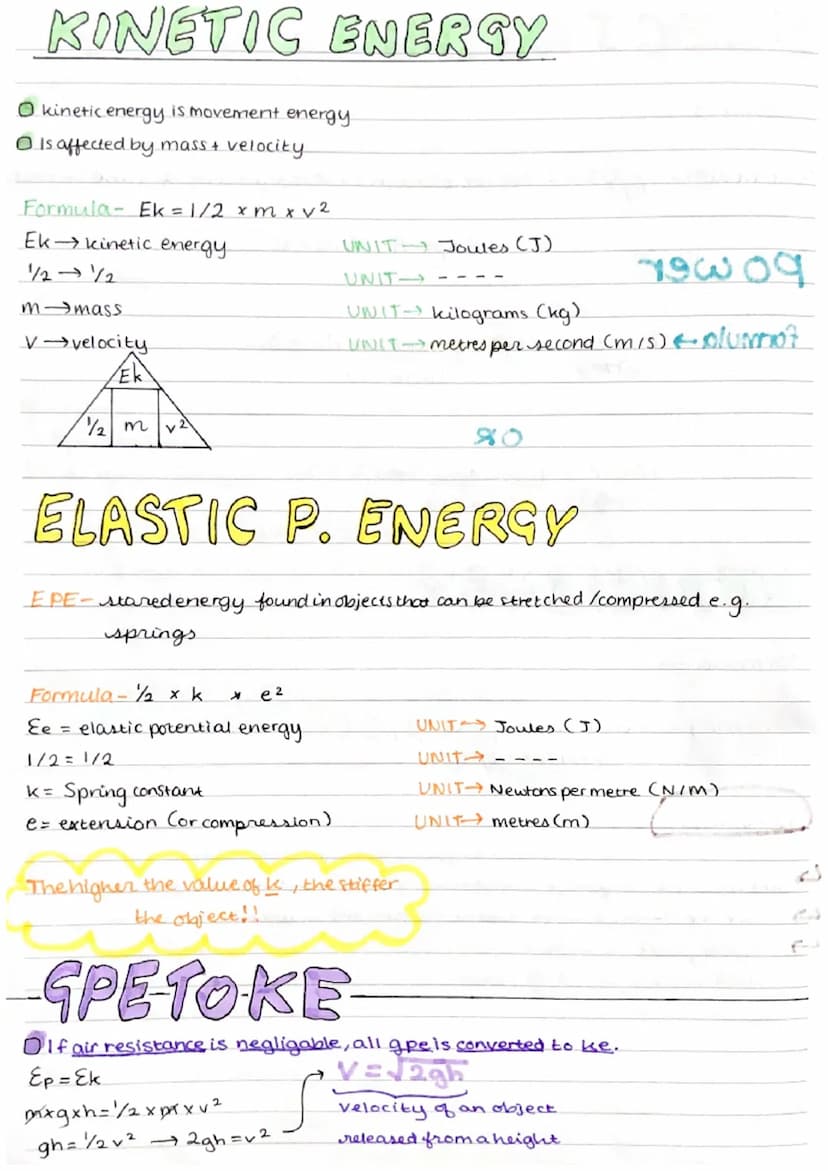 KINETIC ENERGY
kinetic energy is movement energy
Is affected by mass + velocity
Formula- Ek = 1/2 x m x v²
Ek → kinetic energy UNIT → Joules (J)
½ → ½ UNIT → ----
m → mass UNIT → kilograms (kg)
V → velocity UNIT → metres per second (m/s)
Ek
½ m v²
power
formula →
OR
ELASTIC P. ENERGY
EPE- stored energy found in objects that can be stretched /compressed e.g.
springs
Formula- ½ x k x e²
Ee = elastic potential energy UNIT → Joules (J)
1/2 = 1/2 UNIT → ----
k = Spring constant UNIT → Newtons per metre (N/M)
e = extension (or compression) UNIT → metres (m)
The higher the value of k, the stiffer
the object!!
GPE TO KE
If air resistance is negligable, all gpe is converted to ke.
Ep = Ek
m x g x h = ½ x m x v²
gh = ½ v² → 2gh = v²
V = √2gh
velocity of an object
released from a height